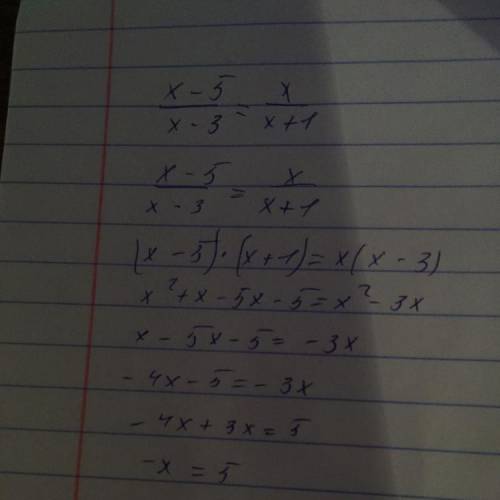 x - 5 / x - 3 = x / x + 1
x - 5 / x - 3 = x / x + 1
(x - 5) · (x + 1) = x(x - 3)
x² + x - 5x - 5 = x² - 3x
x - 5x - 5 = - 3x
- 4x - 5 = - 3x
- 4x + 3x = 5
- x = 5